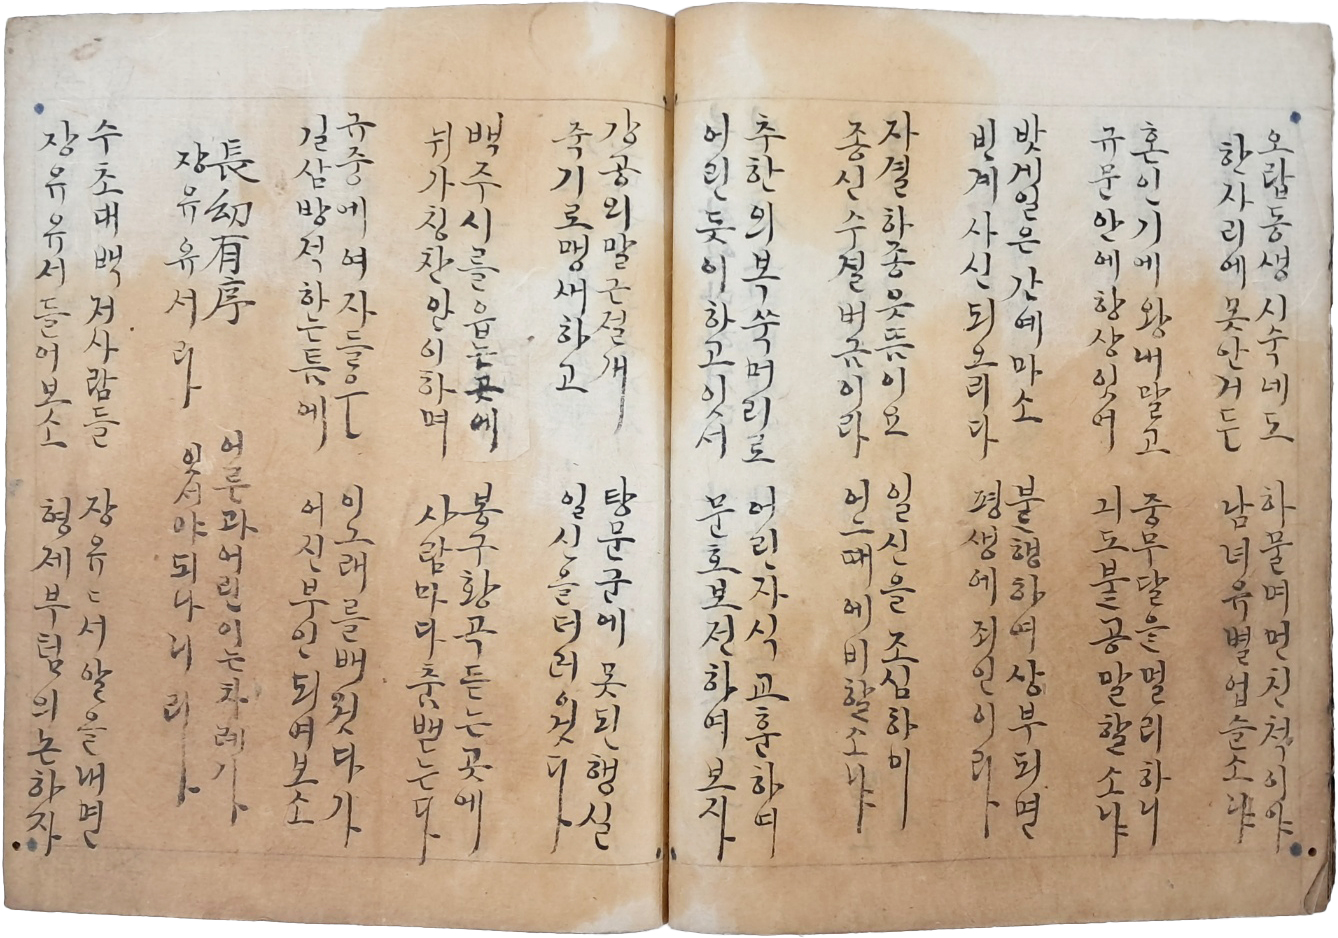 오랍동생시숙네도
한자리에못안거든
하물며먼친척이야
남녀유별업슬소냐
혼인기에왕내말고
규문안에항상잇어
중무달은멀리하니
괴도불공말할소냐
밧게일은간예마소
빈계사신되오리다
불행하여상부되면
평생에죄인이라
자결하종웃듬이요
종신수절버금이라
일신을조심하미
어느때에비할소냐
추한의복쑥머리로
어린듯이하고잇서
어린자식교훈하며
문호보전하여보자
강공의말근절개
죽기로맹새하고
탕문군에못된행실
일신을더러윗다
백주시를읍는곳에
뉘가칭찬안이하며
봉구황곡듣는곳에
사람마다춤밷는다
규중에여자들은
길삼방적하는틈에
이노래를배웟다가
어진부인되여보소
長幼有序
장유유서라
어른과어린이는차레가
잇서야되나니라
수초대백저사람들
장유유서들어보소
장유ㄷ서알을내면
형제부텀의논하자